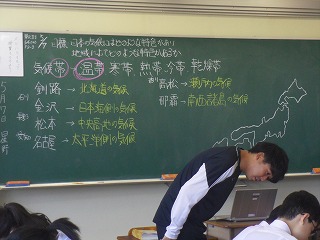 日本の気候にはどのような特色があり
地域によってどのような特色があるか
気候帯→温帯 寒帯 熱帯 冷帯 乾燥帯
釧路→北海道の気候
金沢→日本海側の気候
松本→中央高地の気候
名古屋→太平洋側の気候
高松→瀬戸内の気候
那覇→南西諸島の気候
5月17日